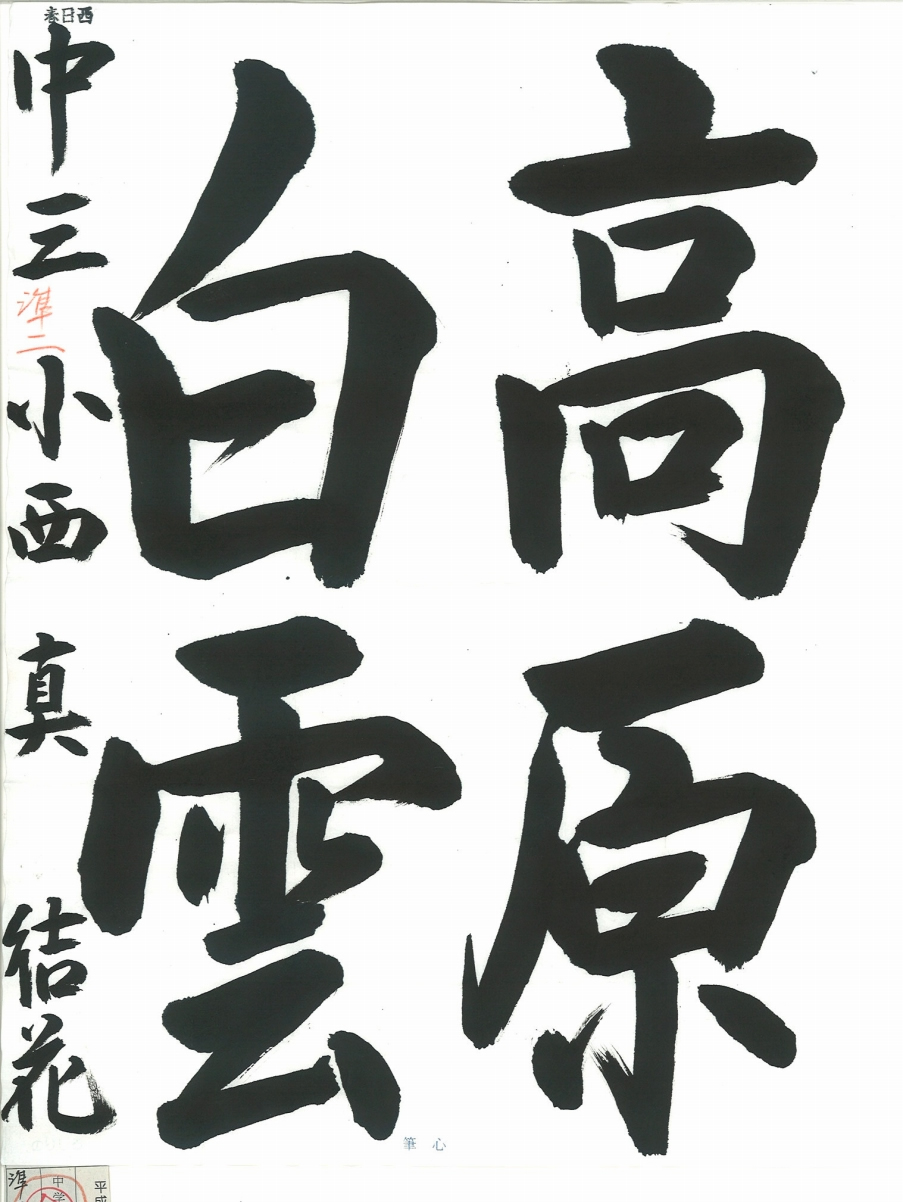 高原
白雲
中三準二小西真結花
西日春
心筆
準
中学
平成